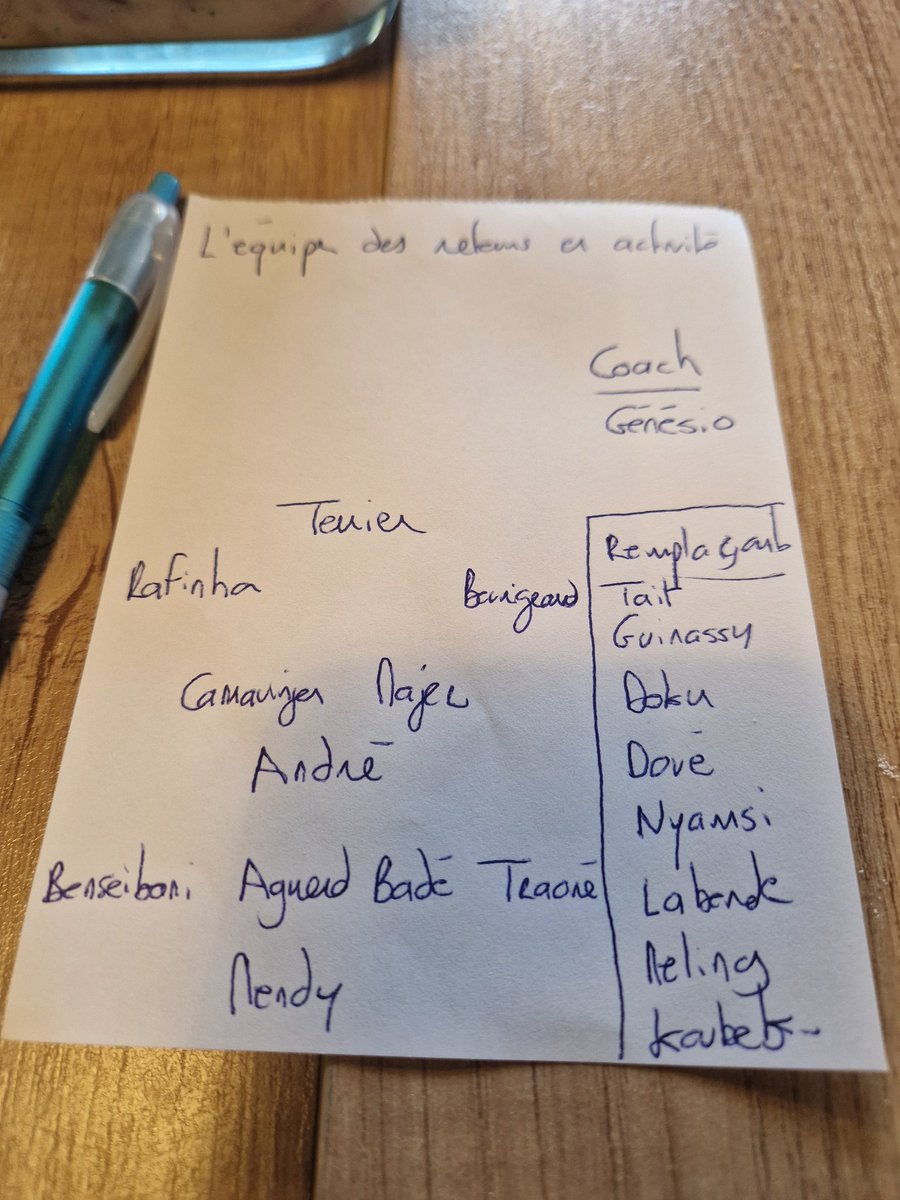 L'équipe des retours en activité
Coach
Génésio
Terrier
Rafinha
Bourigeaud
Camavinga Majer
André
Bensebaini Aguerd Badé Traoré
Mendy
Remplaçants
Tait
Guirassy
Doku
Doué
Nyamsi
Laborde
Meling